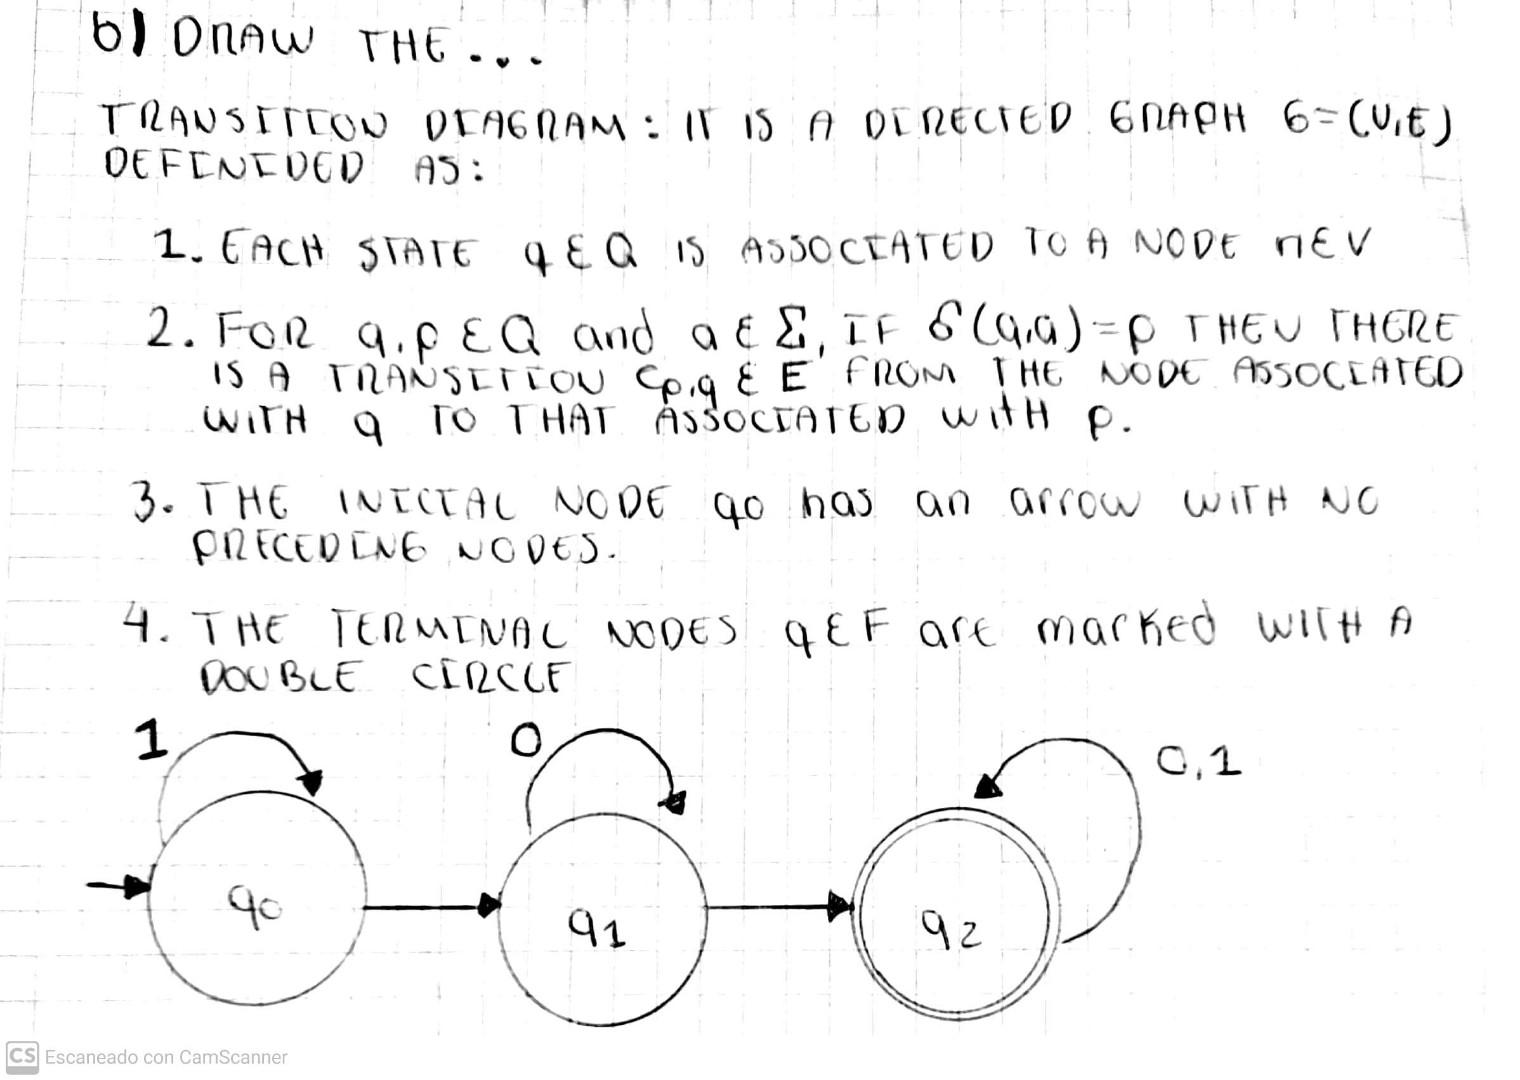 b) DRAW THE...
TRANSITION DIAGRAM: IT IS A DIRECTED GRAPH G=(V,E)
DEFINIDED AS:
1. EACH STATE q ∈ Q IS ASSOCIATED TO A NODE n ∈ V
2. FOR q,p ∈ Q and a ∈ Σ, IF δ(q,a)=p THEN THERE
IS A TRANSITION Cp,q ∈ E FROM THE NODE ASSOCIATED
WITH q TO THAT ASSOCIATED WITH p.
3. THE INICIAL NODE q0 has an arrow WITH NO
PRECEDING NODES.
4. THE TERMINAL NODES q ∈ F are marked WITH A
DOUBLE CIRCLE
1
0
0,1
q0
q1
q2
CS Escaneado con CamScanner